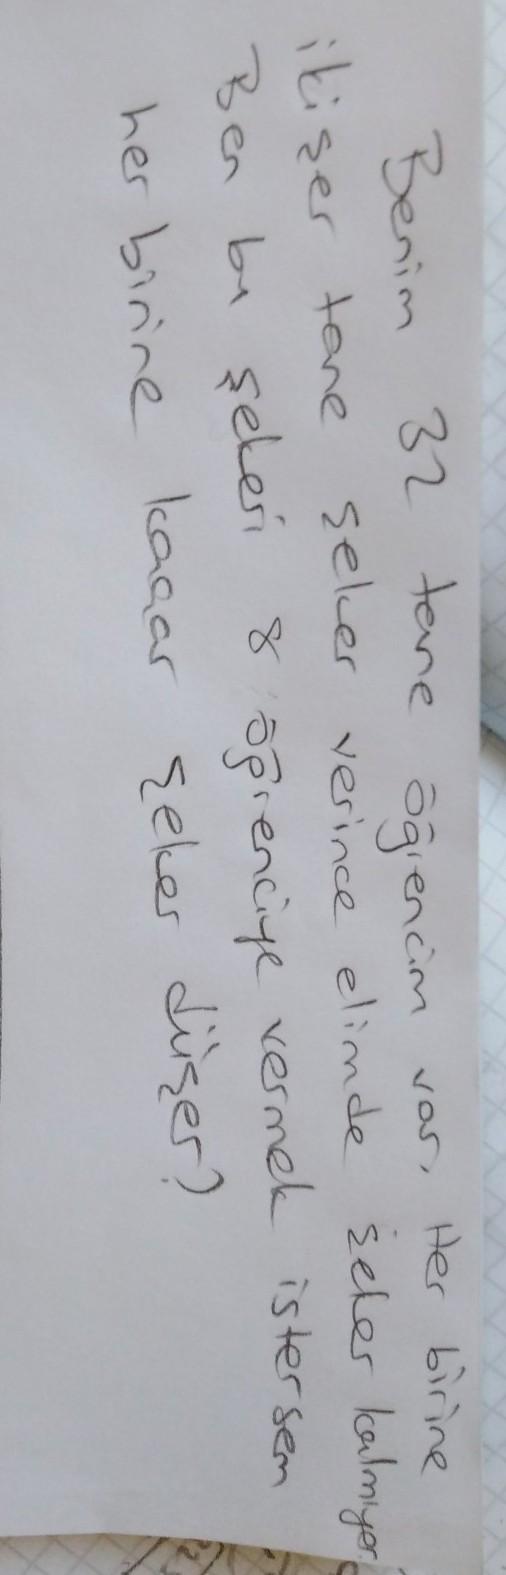 Benim 32 tane öğrencim var, Her birine
ikişer tane şeker verince elimde şeker kalmıyor.
Ben bu şekeri 8 öğrenciye vermek istersem
her birine kaçar şeker düşer?